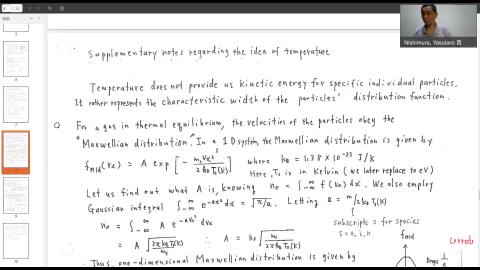 Nishimura, Yasutaro 西
Supplementary notes regarding the idea of temperature
Temperature does not provide us kinetic energy for specific individual particles.
It rather represents the characteristic width of the particles' distribution function.
For a gas in thermal equilibrium, the velocities of the particles obey the
"Maxwellian distribution". In a 1D system, the Maxwellian distribution is given by
f_{M1d}(v_x) = A exp[- m_s v_x² / 2 k_B T_s(K)] where k_B = 1.38 × 10^{-23} J/K
Here, T_s is in Kelvin (we later replace to eV)
Let us find out what A is, knowing n_0 = ∫_{-∞}^{∞} f(v_x) dx. We also employ
Gaussian integral ∫_{-∞}^{∞} e^{-ax²} dx = √(π/a). Letting a = m/2 k_B T_s(K)
n_0 = ∫_{-∞}^{∞} A e^{-av_x²} dv_x
subscripts s for species
s = e, i, n
= A √(2π k_B T_s(K) / m_s) ∴ A = n_0 √(m_s / 2π k_B T_s(K))
Drops 1/e
Thus, one-dimensional Maxwellian distribution is given by